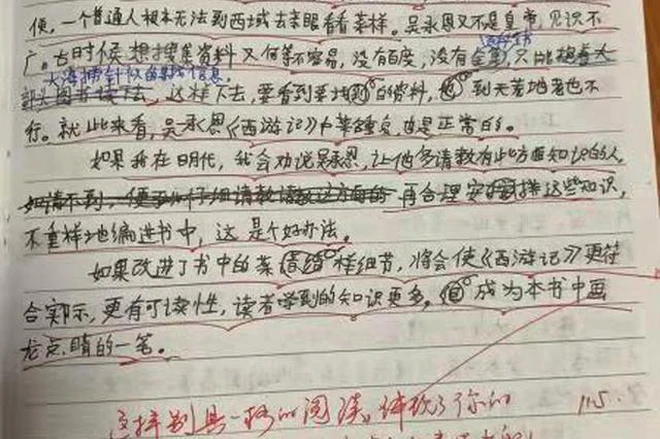 便，一个普通人根本无法到西域去亲眼看看菜样。吴永恩又不是皇帝，见识不
广。古时候想搜集资料又何等不容易，没有百度，没有
大海捞针似的寻找信息，
这样下去，要看到菜地的资料，到天荒地老也不
行。就此来看，吴承恩《西游记》中菜重复也是正常的。
如果我在明代，我会劝说吴承恩，让他多请教有此方面知识的人，
再合理安排这些知识，
不重样地编进书中，这是个好办法。
如果改进了书中的菜样细节，将会使《西游记》更符
合实际，更有可读性，读者学到的知识更多，成为本书中画
龙点睛的一笔。
这样别具一格的阅读，体现了你的
11.5.